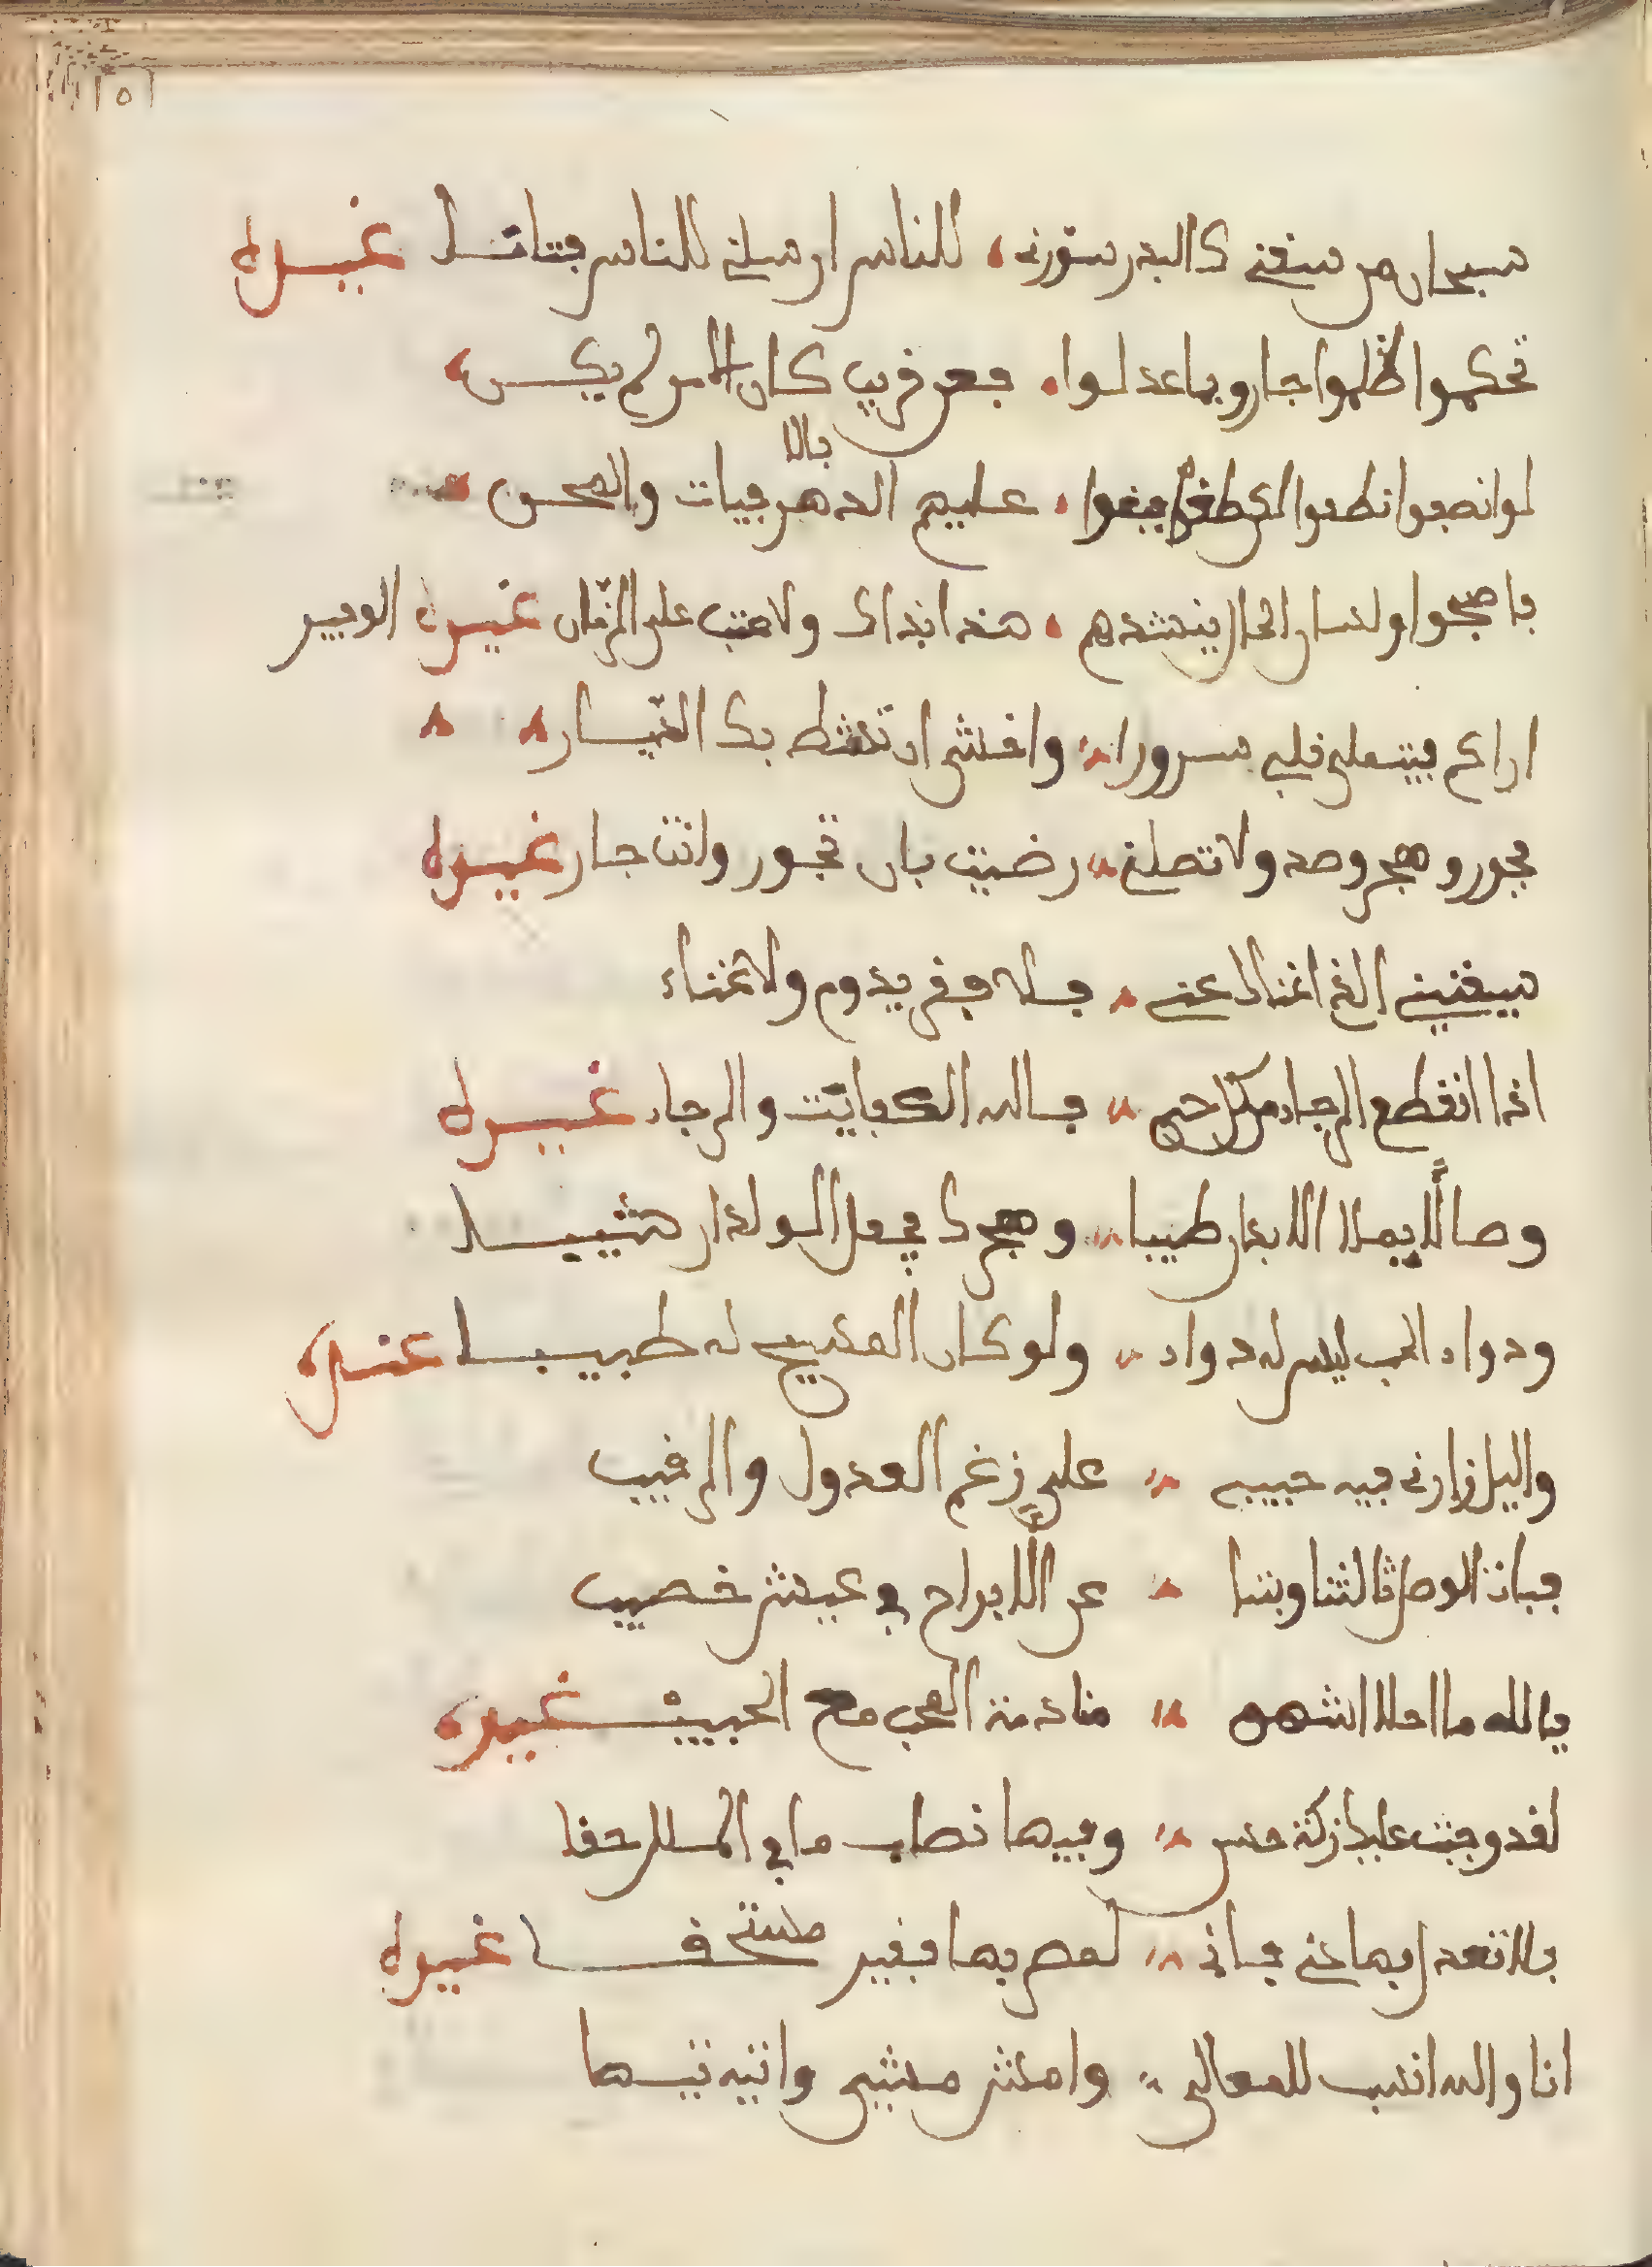 سبحان من سقني كالبدر سورني، للناس ارسلني للناس فتانا غيره
تحكموا ظلموا جاروا وما عدلوا، فعن قريب كان الامر لم يكن،
لو انصفوا انصفوا لكن بغوا فبغوا، عليهم الدهر بالافات والمحن
فاصبحوا ولسان الحال ينشدهم، هذا بذاك ولا عتب على الزمان غيره الوفير
اراكم فيمتلي قلبي سرورا، واخشى ان تشط بك الديار
فجور وهجر وصد ولا تصلني، رضيت بان تجور وانت جار غيره
سيغنيني الذي اغناك عني، فلا فقر يدوم ولا غناء
اذا انقطع الرجاء من كل حي، فالله الكفاية والرجاء غيره
وصالك يملا الابدان طيبا، وهجرك يجعل الولدان شيبا
ودواء الحب ليس له دواء، ولو كان المسيح له طبيبا غيره
واليل زارني فيه حبيبي، على رغم العدول والرقيب
فبات الوصل ثالثنا وبتنا، على الافراح في عيش خصيب
فيالله ما احلا اشهى، منادمة المحب مع الحبيب غيره
لقد وجبت عليك زكاة حسن، وفيها نصاب ما في الملك حقا
فلا تعدل بها عني فاني، لعمر بها فقير مستحقا غيره
انا والله انسب للمعالي، وامش مشيتي واتيه تيها